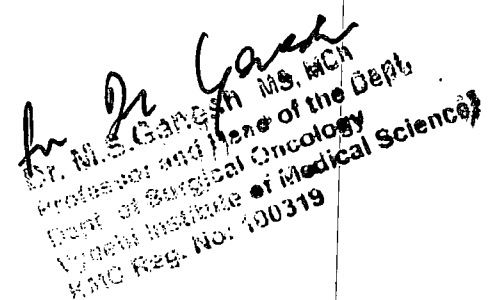 for Dr Ganesh
Dr. M.S.Ganesh MS, MCh
Professor and Head of the Dept.
Dept. of Surgical Oncology
Vydehi Institute of Medical Sciences
KMC Reg. No: 100319